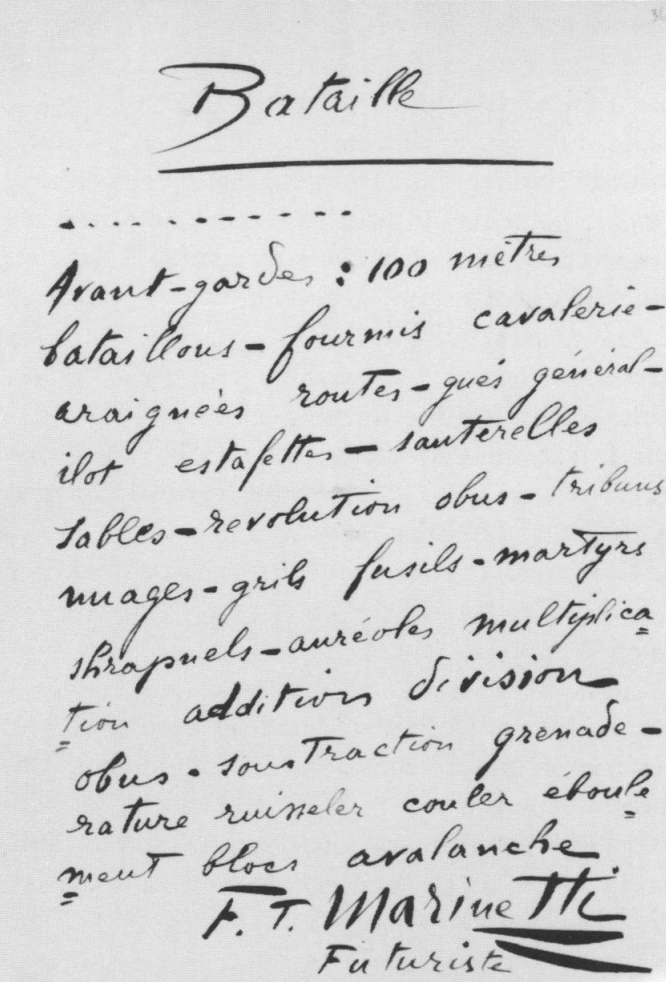 Bataille
. . . . - - - - - -
Avant-gardes : 100 mètres
bataillons - fourmis cavalerie-
araignées routes - gués général-
ilot estafettes - sauterelles
sables - revolution obus - tribuns
nuages - grils fusils - martyrs
shrapnels - auréoles multiplica
tion addition division
obus - soustraction grenade -
rature ruisseler couler éboule
ment blocs avalanche
F. T. Marinetti
Futuriste